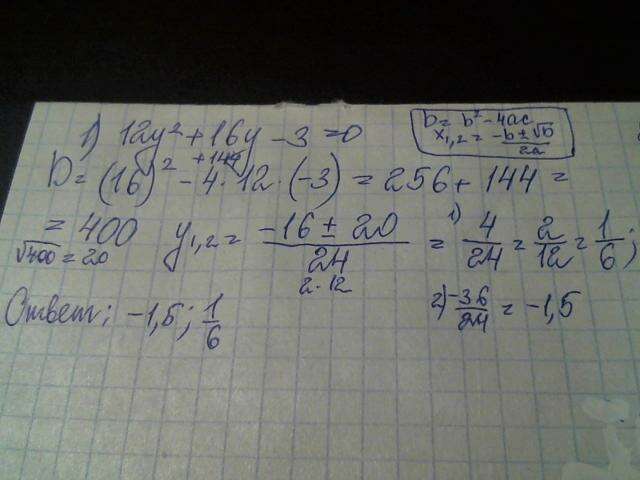 1) 12y² + 16y - 3 = 0
D = b² - 4ac
x₁,₂ = (-b ± √D)/2a
+144
D = (16)² - 4 · 12 · (-3) = 256 + 144 =
= 400 y₁,₂ = (-16 ± 20)/24 = 1) 4/24 = 2/12 = 1/6;
√400 = 20
2 · 12
2) -36/24 = -1,5
Ответ: -1,5; 1/6